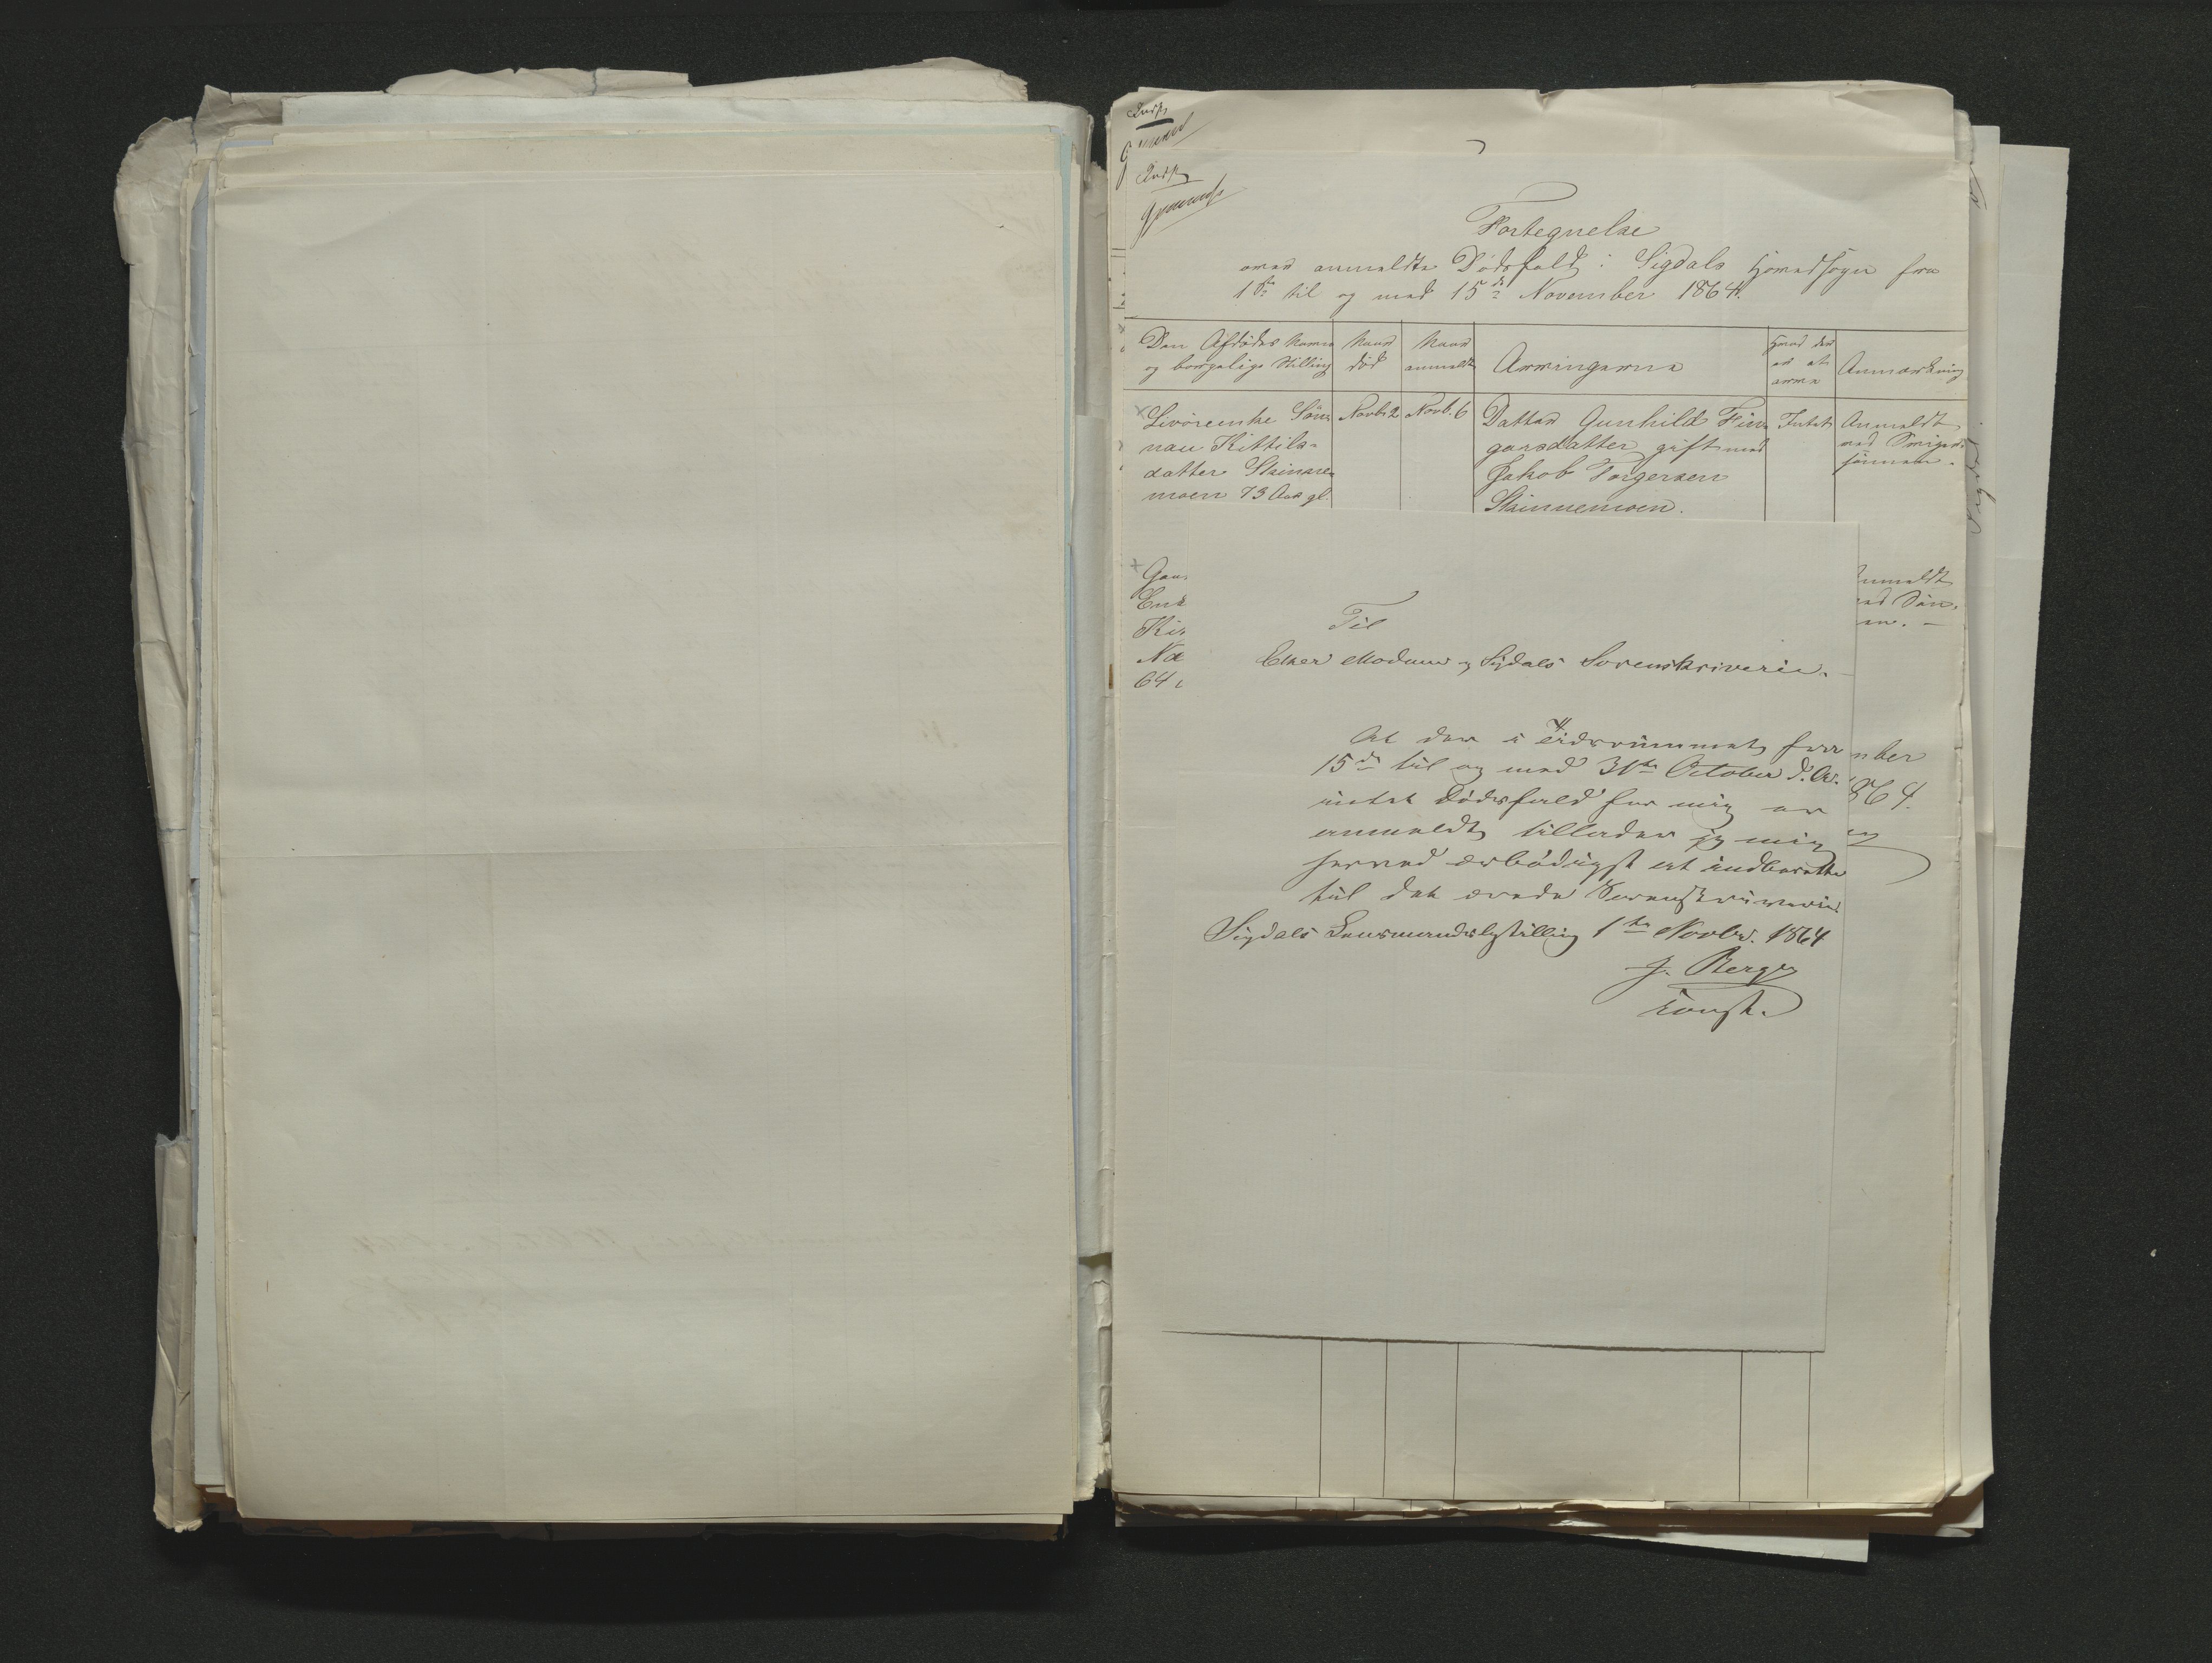 Indf.
Gjennemst
Fortegnelse
over anmeldte Dødsfald i Sigdals Hovedsogn fra
1ste til og med 15de November 1864.
Den Afdødes Navn
og borgelige Stilling
Naar
død
Naar
anmeldt
Arvingerne
Hvad der
er at
arve
Anmærkning
Livørenske Søn
nau Kittils-
datter Skinnes
moen 73 Aar gl.
Novb. 2
Novb. 6
Datter Gunhild Fin
garsdatter gift med
Jakob Torgersen
Skinnemoen.
Intet
Anmeldt
ved Svigers
sønnen.
Gau
Enk
Kir
No
64
nmeldt
ved Søn
en. -
Til
Eker Modum og Sigdals Sorenskriverie.
At der i Tidsrummet fra
15de til og med 31te October d. A.
intet Dødsfald for mig er
anmeldt, tillader jeg mig
herved ærbødigst at indberette
til det ærede Sorenskriverie
Sigdals Lensmandsbestilling 1ste Novbr. 1864
J. Berg
konst.
mber
864.